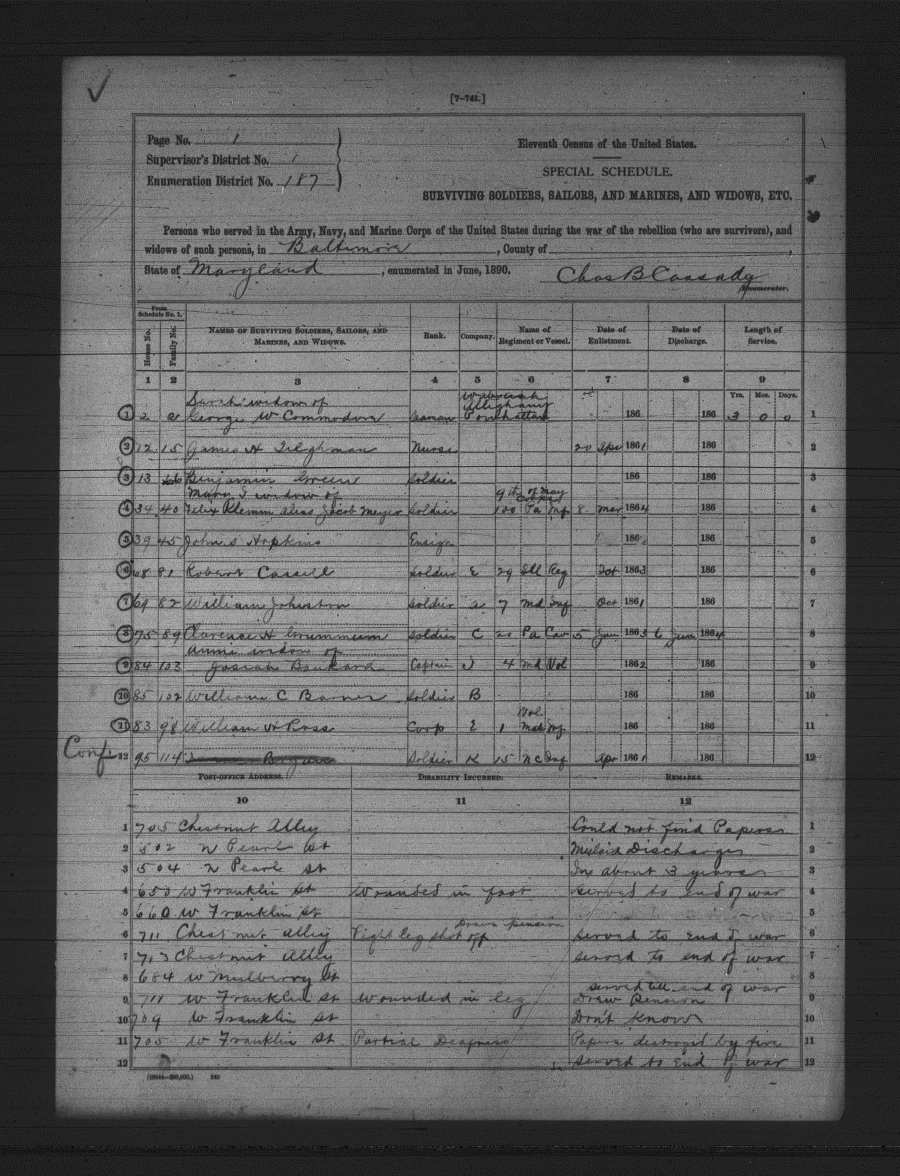 [7-741.]
Page No. 1
Supervisor's District No. 1
Enumeration District No. 187
Eleventh Census of the United States.
SPECIAL SCHEDULE.
SURVIVING SOLDIERS, SAILORS, AND MARINES, AND WIDOWS, ETC.
Persons who served in the Army, Navy, and Marine Corps of the United States during the war of the rebellion (who are survivors), and
widows of such persons, in Baltimore, County of ,
State of Maryland, enumerated in June, 1890. Chas B Cassady
Enumerator.
From Schedule No. 1.
House No. Family No. NAMES OF SURVIVING SOLDIERS, SAILORS, AND MARINES, AND WIDOWS. Rank. Company. Name of Regiment or Vessel. Date of Enlistment. Date of Discharge. Length of Service.
1 2 3 4 5 6 7 8 9
Yrs. Mos. Days.
Sarah widow of
Alleghany
1 2 2 George W Commodore Seaman Powhattan 186 186 3 0 0 1
2 12 15 James H Tilghman Nurse 20 Apr 1861 186 2
3 13 Benjamin Green Soldier 186 186 3
Mary J widow of 9th of May
4 34 40 Felix Klemm alias Jacob Meyer Soldier 100 Pa Inf 8 Mar 1864 186 4
5 39 45 John S Hopkins Ensign 186 186 5
6 68 81 Robert Cassell Soldier E 29 Ill Reg Oct 1863 186 6
7 69 82 William Johnston Soldier a 7 Md Inf Oct 1861 186 7
8 75 89 Clarence H Soldier C 20 Pa Cav 5 Jan 1863 6 Jun 1864 8
Annie widow of
9 84 103 Josiah Bankard Captain J 4 Md Vol 1862 186 9
10 85 102 William C Barner Soldier B 186 186 10
Vol.
11 83 98 William H Ross Corp E 1 Md Inf 186 186 11
Conf. 12 95 114 Bryan Soldier K 15 N C Inf Apr 1861 186 12
POST-OFFICE ADDRESS. DISABILITY INCURRED. REMARKS.
10 11 12
1 705 Chestnut Alley Could not find Papers 1
2 502 N Pearl St Mislaid Discharge 2
3 504 N Pearl St In about 3 years 3
4 650 W Franklin St Wounded in foot served to end of war 4
5 660 W Franklin St 5
Draws pension
6 711 Chestnut Alley Right leg shot off served to end of war 6
7 713 Chestnut Alley served to end of war 7
8 684 W Mulberry St 8
served till end of war
9 711 W Franklin St Wounded in leg Draw Pension 9
10 709 W Franklin St Don't know 10
11 705 W Franklin St Partial Deafness Papers destroyed by fire 11
12 served to end of war 12